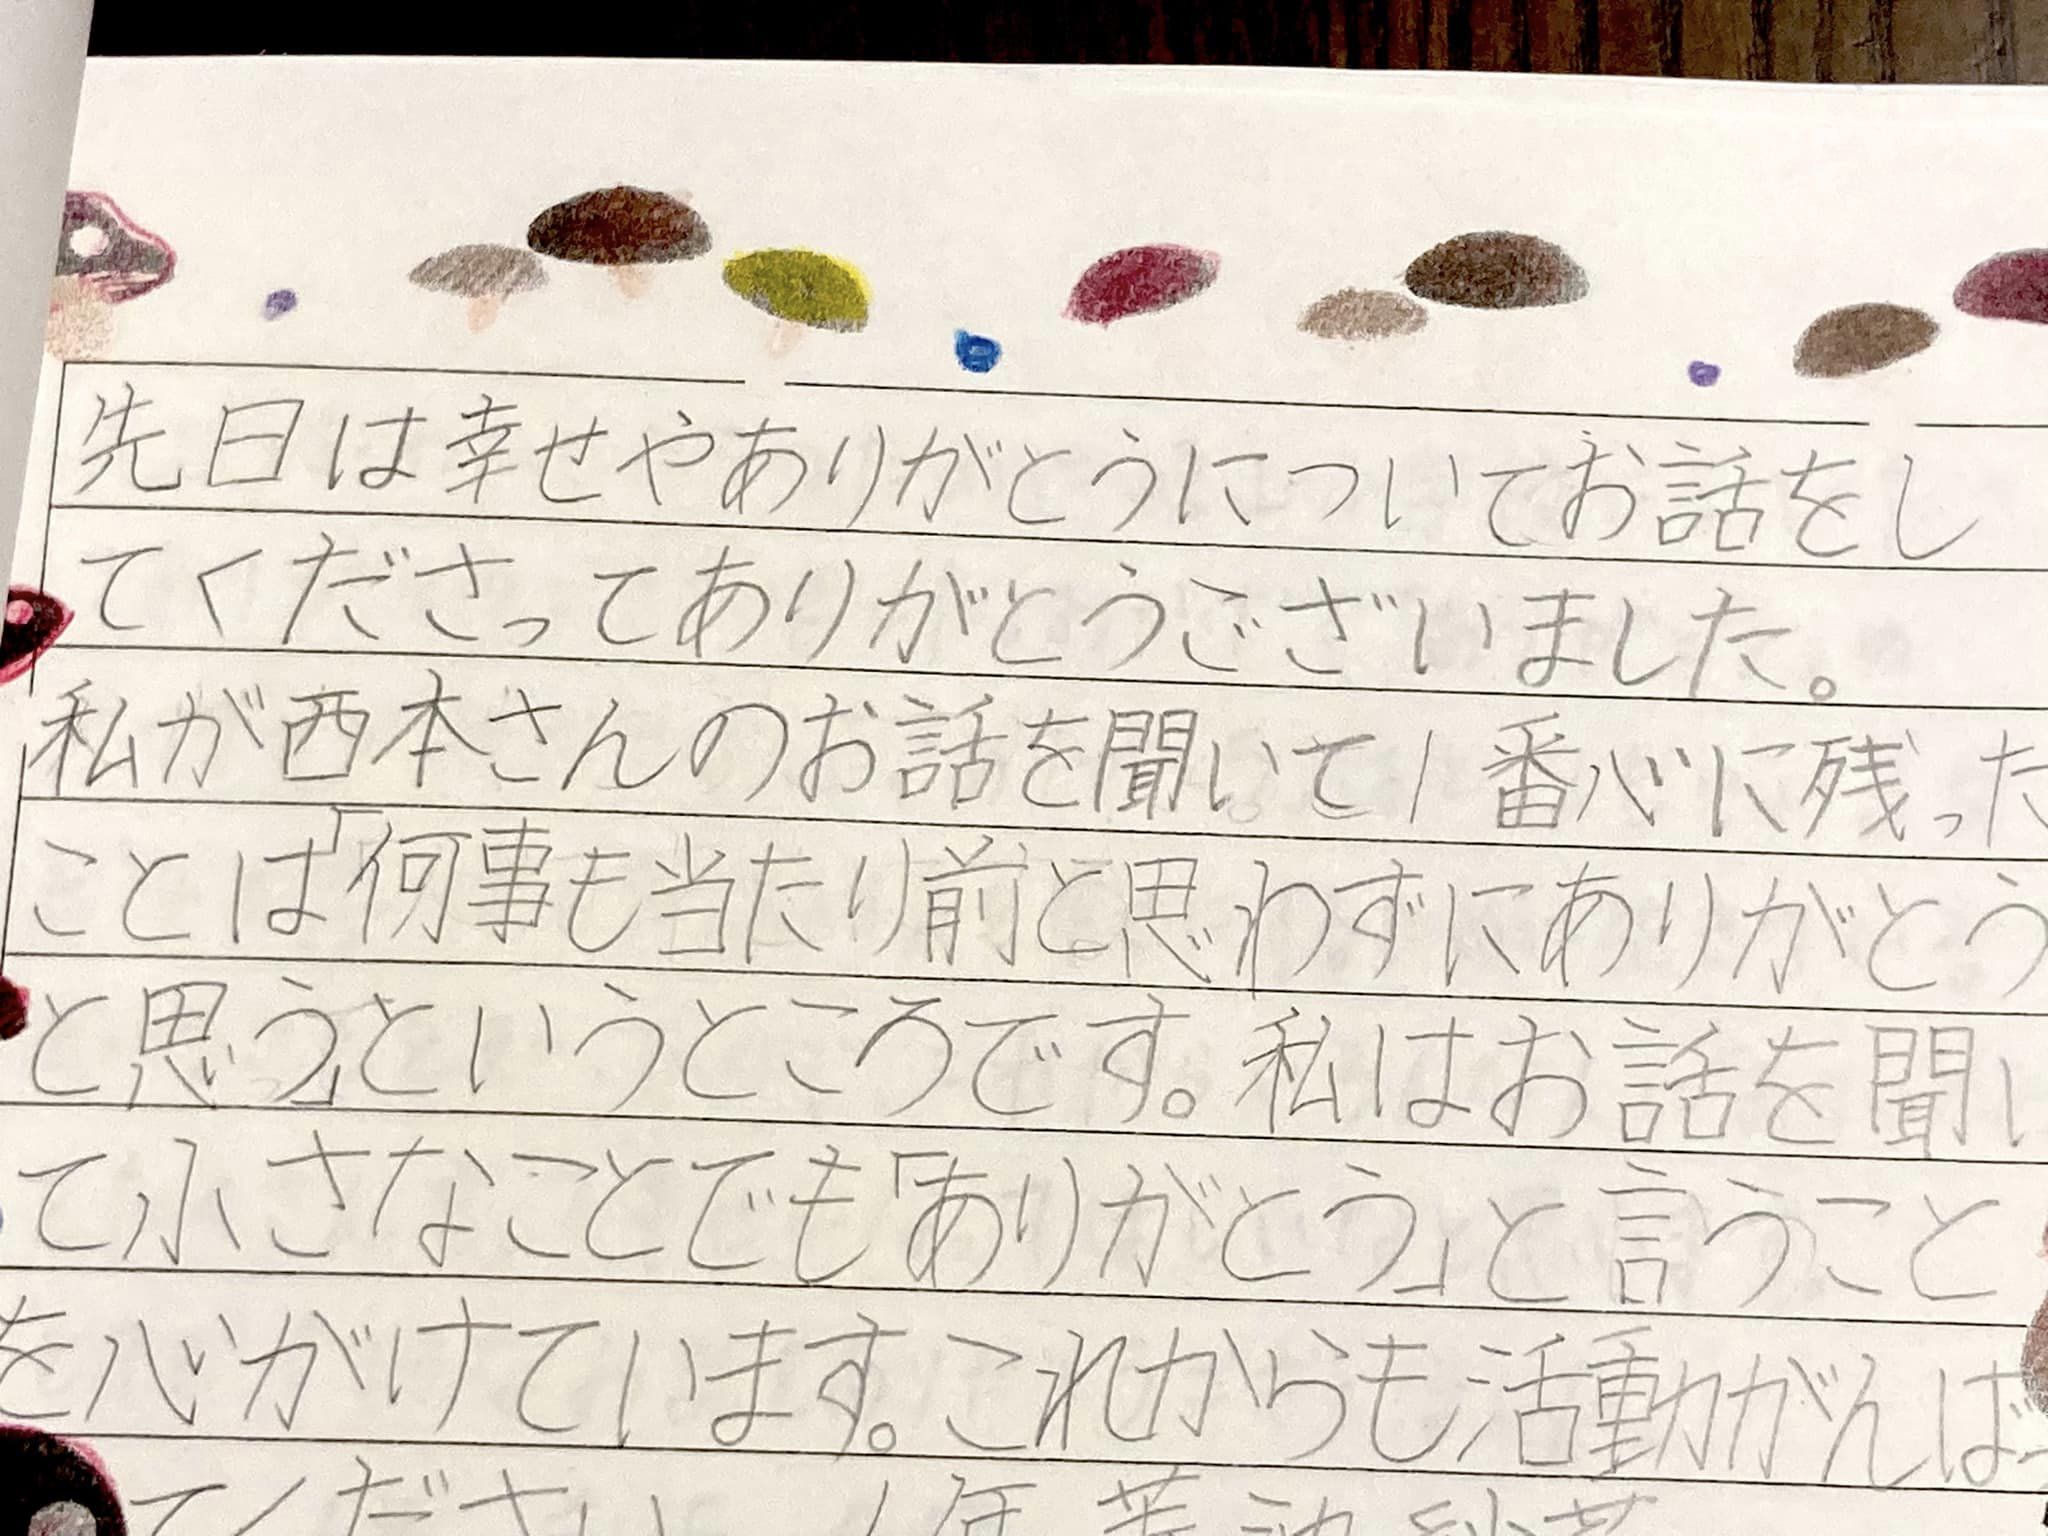 先日は幸せやありがとうについてお話をし
てくださってありがとうございました。
私が西本さんのお話を聞いて1番心に残った
ことは「何事も当たり前と思わずにありがとう
と思う」というところです。私はお話を聞い
て小さなことでも「ありがとう」と言うこと
を心がけています。これからも活動がんばっ
てください。1年